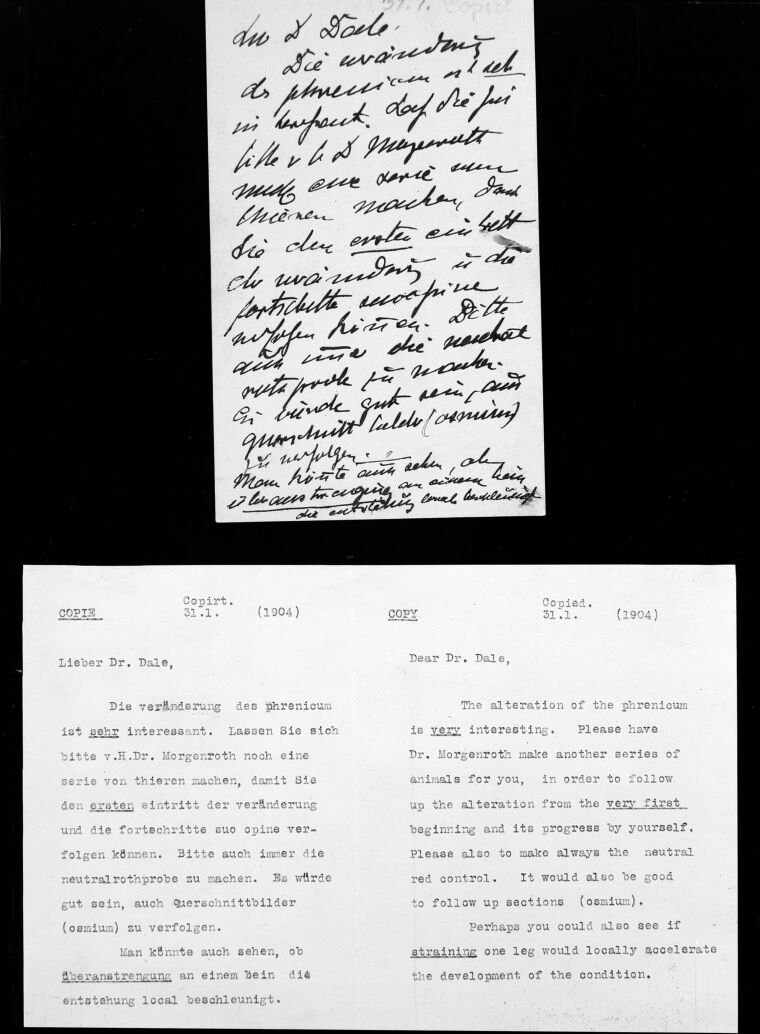 31.1. Copirt
Dr Dale.
Die veränderung
des phrenicum ist sehr
interessant.
bitte v H D Morgenroth
noch eine serie von
thieren machen, damit
Sie den ersten eintritt
der veränderung u die
fortschritte suo opine
verfolgen können. Bitte
auch immer die neutral
rothprobe zu machen.
Es würde gut sein, auch
Querschnitt bilder (osmium)
zu verfolgen.
Man könnte auch sehen, ob
überanstrengung an einem bein
die entstehung local beschleunigt
COPIE
Copirt.
31.1. (1904)
Lieber Dr. Dale,
Die veränderung des phrenicum
ist sehr interessant. Lassen Sie sich
bitte v.H.Dr. Morgenroth noch eine
serie von thieren machen, damit Sie
den ersten eintritt der veränderung
und die fortschritte suo opine ver-
folgen können. Bitte auch immer die
neutralrothprobe zu machen. Es würde
gut sein, auch Querschnittbilder
(osmium) zu verfolgen.
Man könnte auch sehen, ob
überanstrengung an einem bein die
entstehung local beschleunigt.
COPY
Copied.
31.1. (1904)
Dear Dr. Dale,
The alteration of the phrenicum
is very interesting. Please have
Dr. Morgenroth make another series of
animals for you, in order to follow
up the alteration from the very first
beginning and its progress by yourself.
Please also to make always the neutral
red control. It would also be good
to follow up sections (osmium).
Perhaps you could also see if
straining one leg would locally accelerate
the development of the condition.